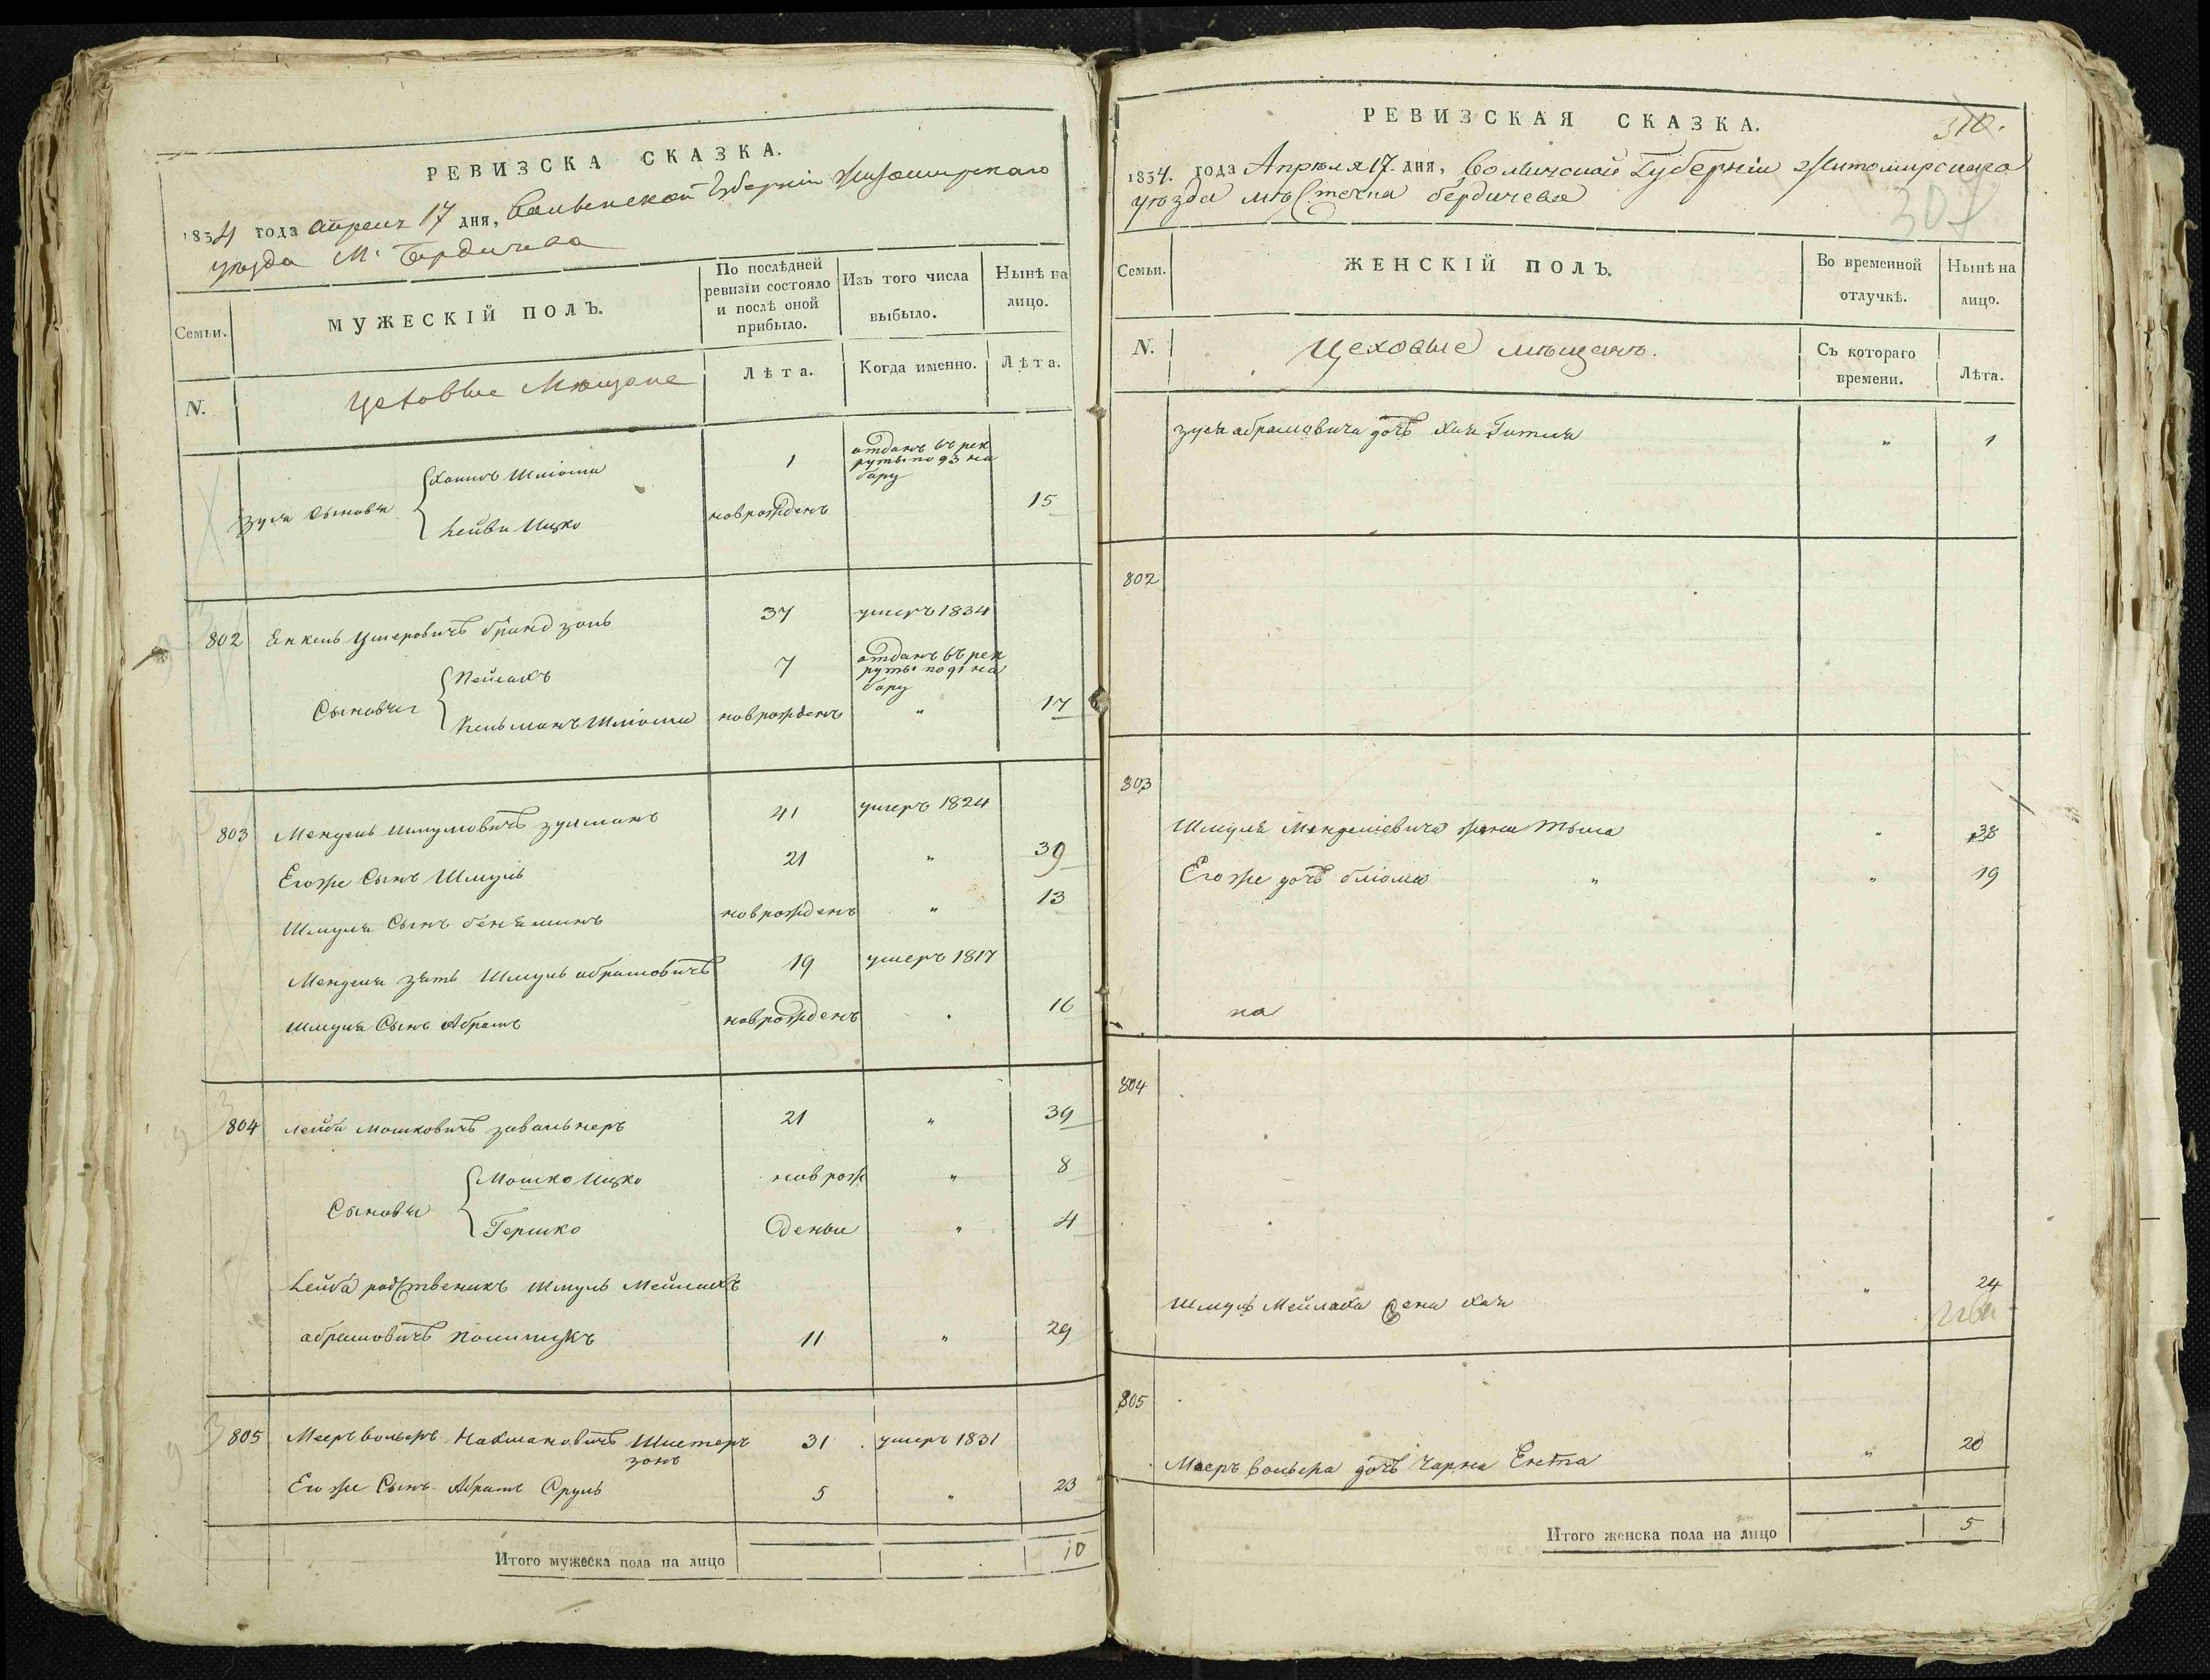 РЕВИЗСКА СКАЗКА.
1834 года апреля 17 дня, Волынской Губернии Житомирскаго
уѣзда М. Бердичева
Семьи.
МУЖЕСКІЙ ПОЛЪ.
По послѣдней
ревизіи состояло
и послѣ оной
прибыло.
Изъ того числа
выбыло.
Нынѣ на
лицо.
N.
Цеховые Мещане
Лѣта.
Когда именно.
Лѣта.
Зуся сыновья
Хаимъ Шліома 1 отданъ въ рек
руты по 93 на
бору
Лейви Ицко новрожденъ 15
802 Енкель Ушеровичъ бриндзонъ 37 умеръ 1834
Сыновья
Пейсахъ 7 отданъ въ рек
руты по 91 на
бору
Кельманъ Шліома новрожденъ " 17
803 Мендель Шмулиовичъ зулманъ 41 умеръ 1824
Егоже Сынъ Шмуль 21 " 39
Шмуля Сынъ бенѣминъ новрожденъ " 13
Менделя зять Шмуль абрамовичъ 19 умеръ 1817
Шмуля Сынъ Абрамъ новрожденъ " 16
804 Лейба Мошковичъ завальнеръ 21 " 39
Сыновья
Мошко Ицко новрож " 8
Гершко дены " 4
Лейба родственикъ Шмуль Мейлахъ
абрамовичъ полищукъ 11 " 29
805 Мееръ вольфъ Нахмановичъ Шистеръ
зонъ 31 умеръ 1831
Егоже Сынъ Абрамъ Сруль 5 " 23
Итого мужеска пола на лицо 10
РЕВИЗСКАЯ СКАЗКА.
310.
1834. года Апреля 17. дня, Волынской Губерніи Житомирскаго
уѣзда мѣстечка бердичева
307
Семьи.
ЖЕНСКІЙ ПОЛЪ.
Во временной
отлучкѣ.
Нынѣ на
лицо.
N.
Цеховые мѣщанъ.
Съ котораго
времени.
Лѣта.
Зуся абрамовича дочъ Хая Гитля " 1
802
803
Шмуля Менделiовича жена 38
Егоже дочъ бліома " " 19
на
804
Шмуля Мейлаха жена Хая " 24
805
Мееръ вольфа дочъ Чарна Ента " 20
Итого женска пола на лицо 5